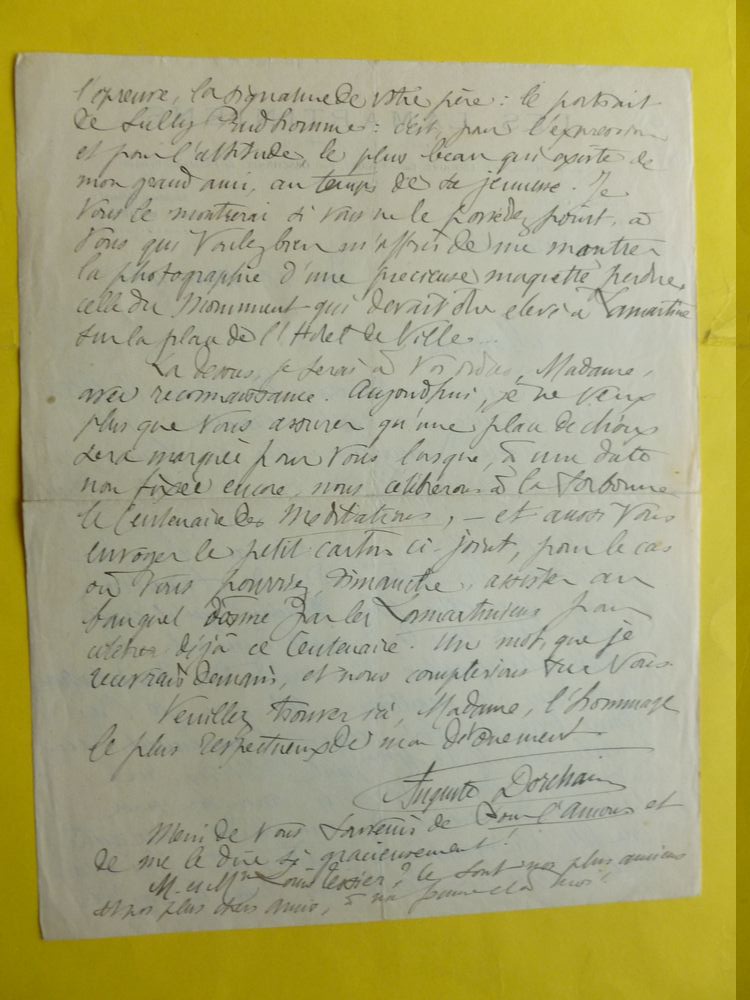 l'épreuve, la signature de votre père : le portrait
de Sully Prudhomme : c'est, pour l'expression
et pour l'attitude, le plus beau qui existe de
mon grand ami, au temps de sa jeunesse. Je
vous le montrerai si vous ne le possédez point, à
vous qui voulez bien m'offrir de me montrer
la photographie d'une précieuse maquette perdue,
celle du Monument qui devait être élevé à Lamartine
sur la place de l'Hôtel de Ville...
Là dessus, je serai à vos ordres, Madame,
avec reconnaissance. Aujourd'hui, je ne veux
plus que vous assurer qu'une place de choix
sera marquée pour vous lorsque, à une date
non fixée encore, nous célèbrerons à la Sorbonne
le Centenaire des Méditations, – et aussi vous
envoyer le petit carton ci-joint, pour le cas
où vous pourriez, dimanche, assister au
banquet donné par les Lamartiniens pour
célébrer déjà ce Centenaire. Un mot, que je
recevrais demain, et nous compterions sur vous.
Veuillez trouver ici, Madame, l'hommage
le plus respectueux de mon dévouement
Auguste Dorchain
Merci de vous souvenir de Pour l'amour et
de me le dire si gracieusement !
M. et Mme Louis Tessier ? Ce sont nos plus anciens
et nos plus chers amis, à ma femme et à moi !